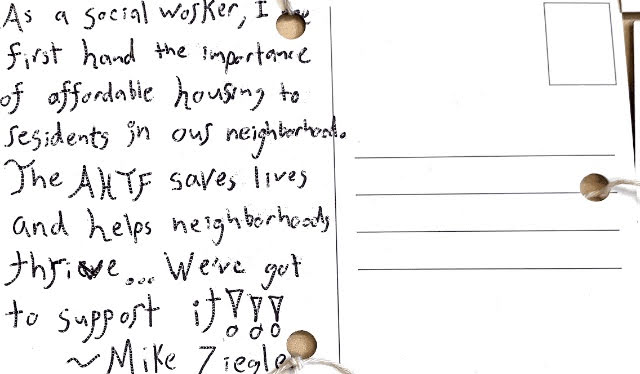 As a social worker, I
first hand the importance
of affordable housing to
residents in our neighborhood.
The AHTF saves lives
and helps neighborhoods
thrive... We've got
to support it!!!
~Mike